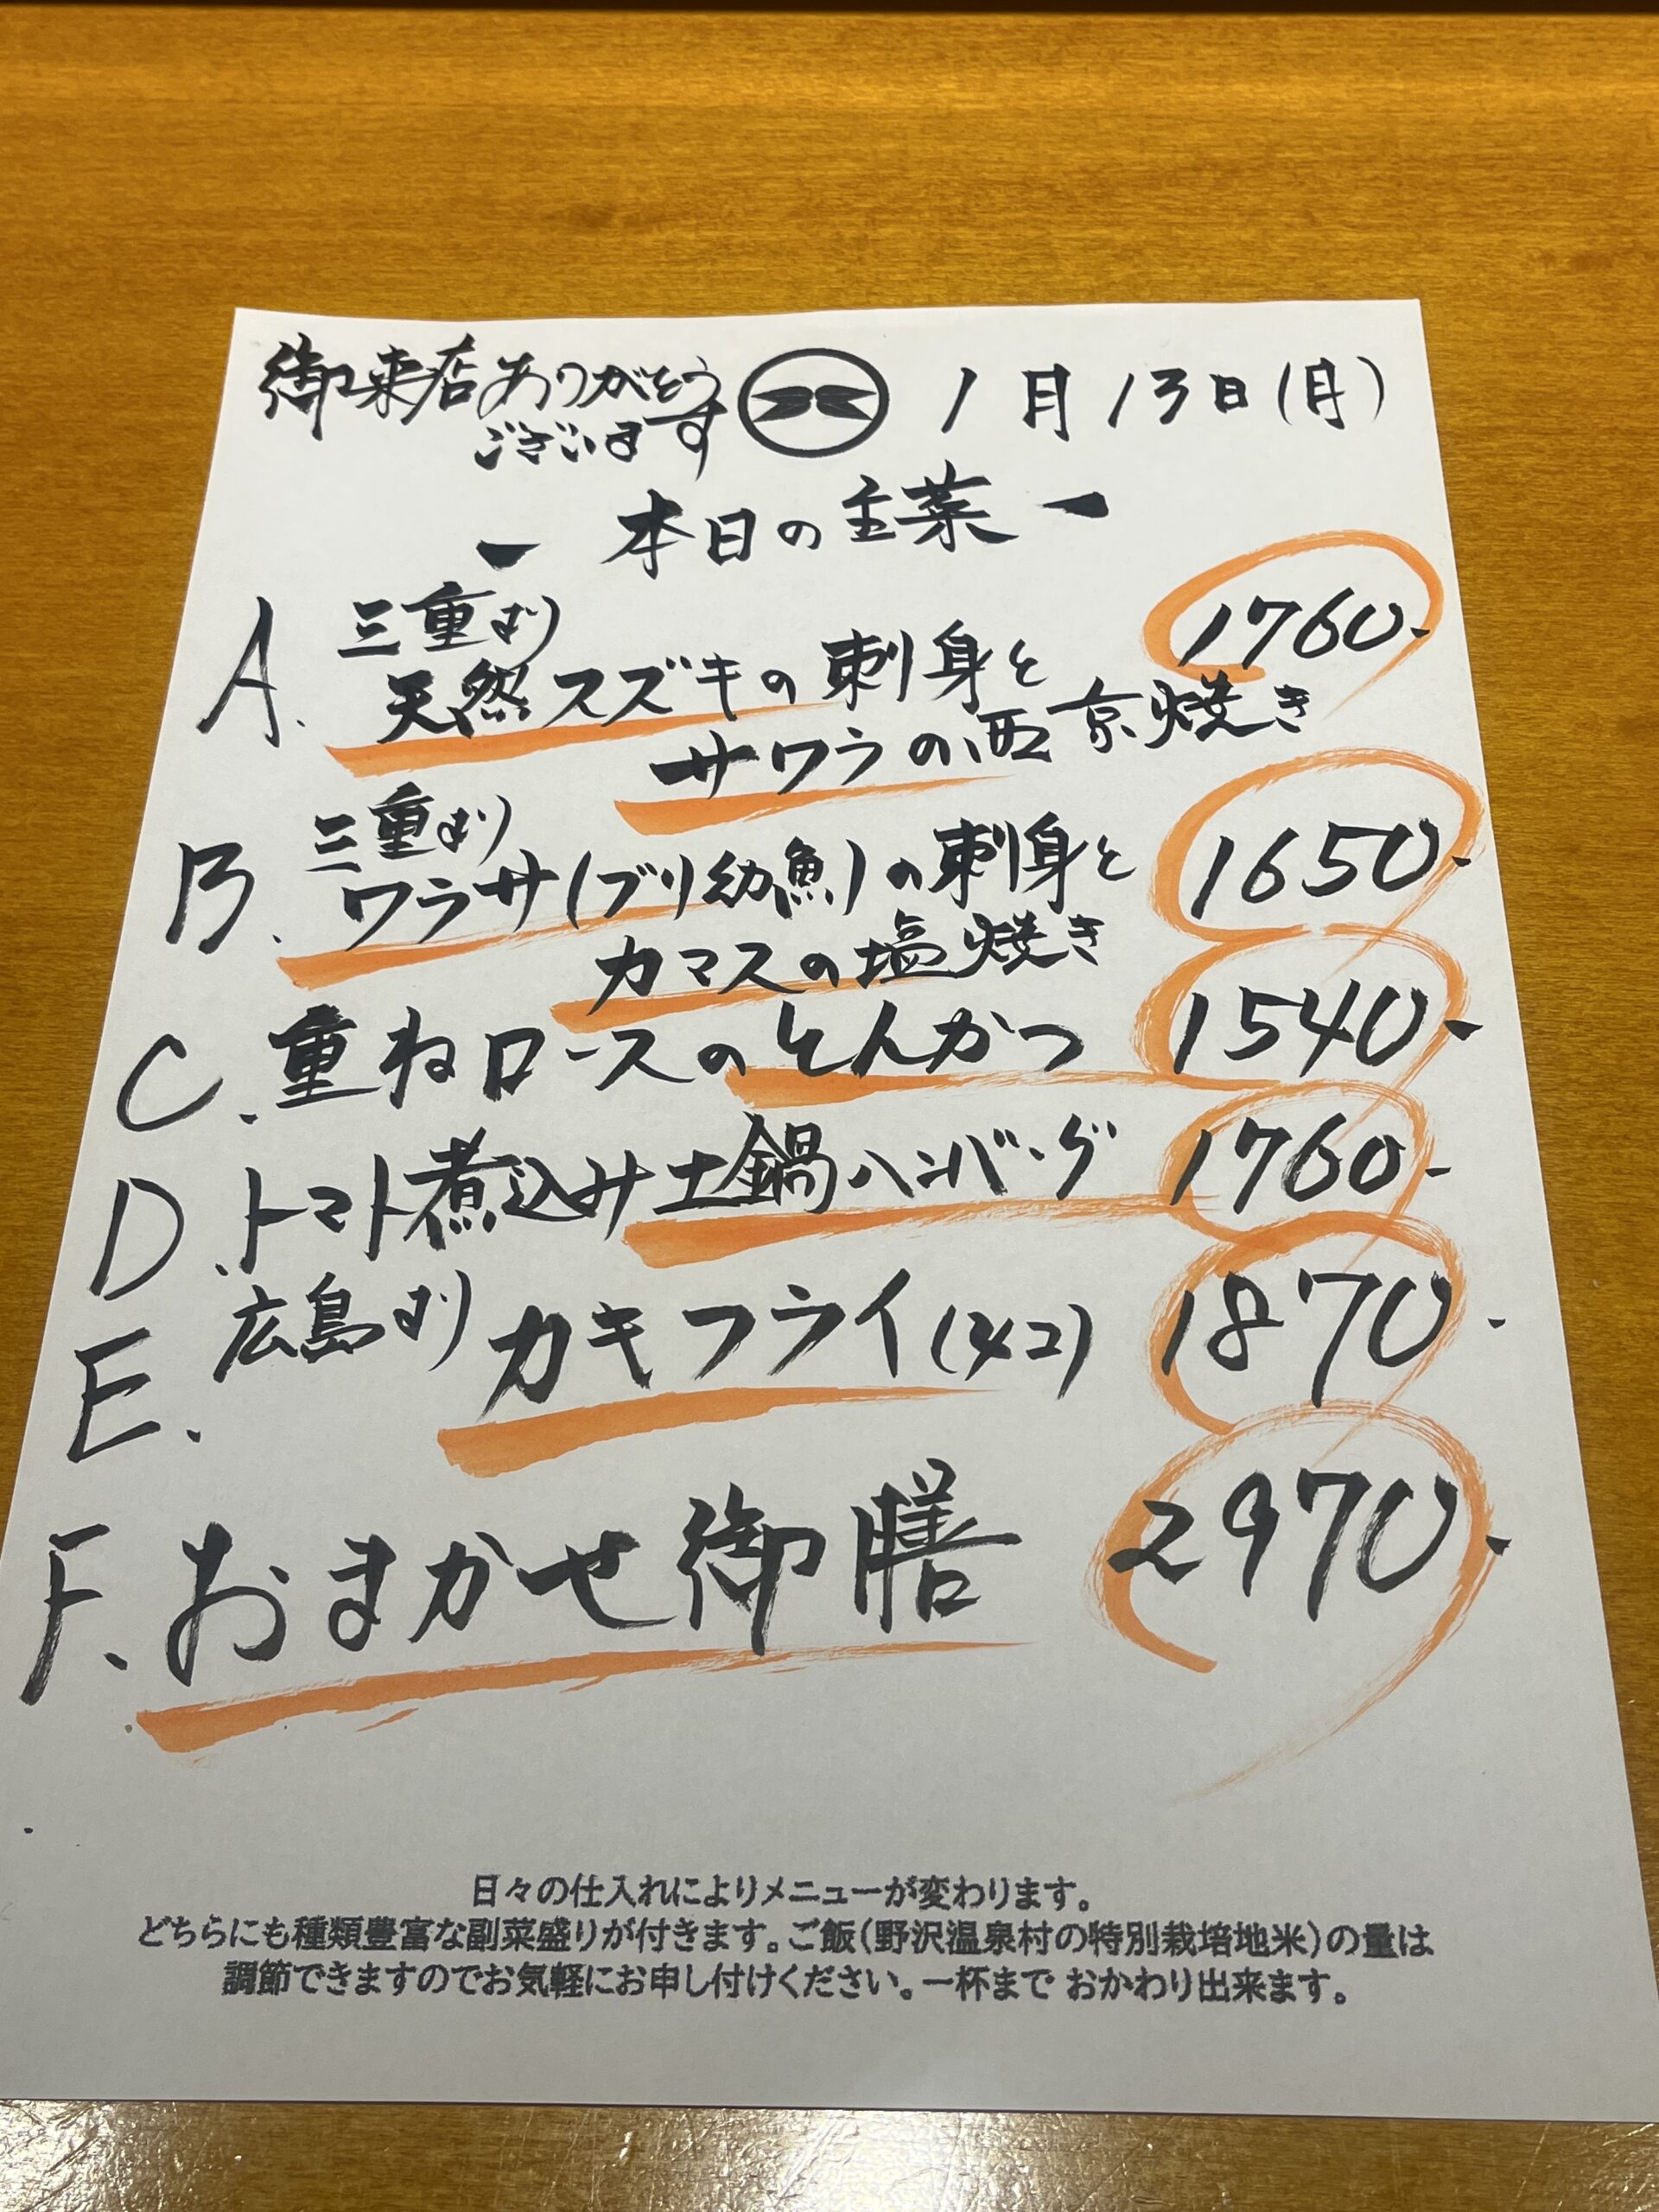 御来店ありがとう
ございます
1月13日(月)
ー 本日の主菜 ー
A. 三重より 1760-
天然スズキの刺身と
サワラの西京焼き
B. 三重より
ワラサ(ブリ幼魚)の刺身と 1650-
カマスの塩焼き
C. 重ねロースのとんかつ 1540-
D. トマト煮込み土鍋ハンバーグ 1760-
E. 広島より カキフライ(4コ) 1870-
F. おまかせ御膳 2970-
日々の仕入れによりメニューが変わります。
どちらにも種類豊富な副菜盛りが付きます。ご飯(野沢温泉村の特別栽培地米)の量は
調節できますのでお気軽にお申し付けください。一杯まで おかわり出来ます。